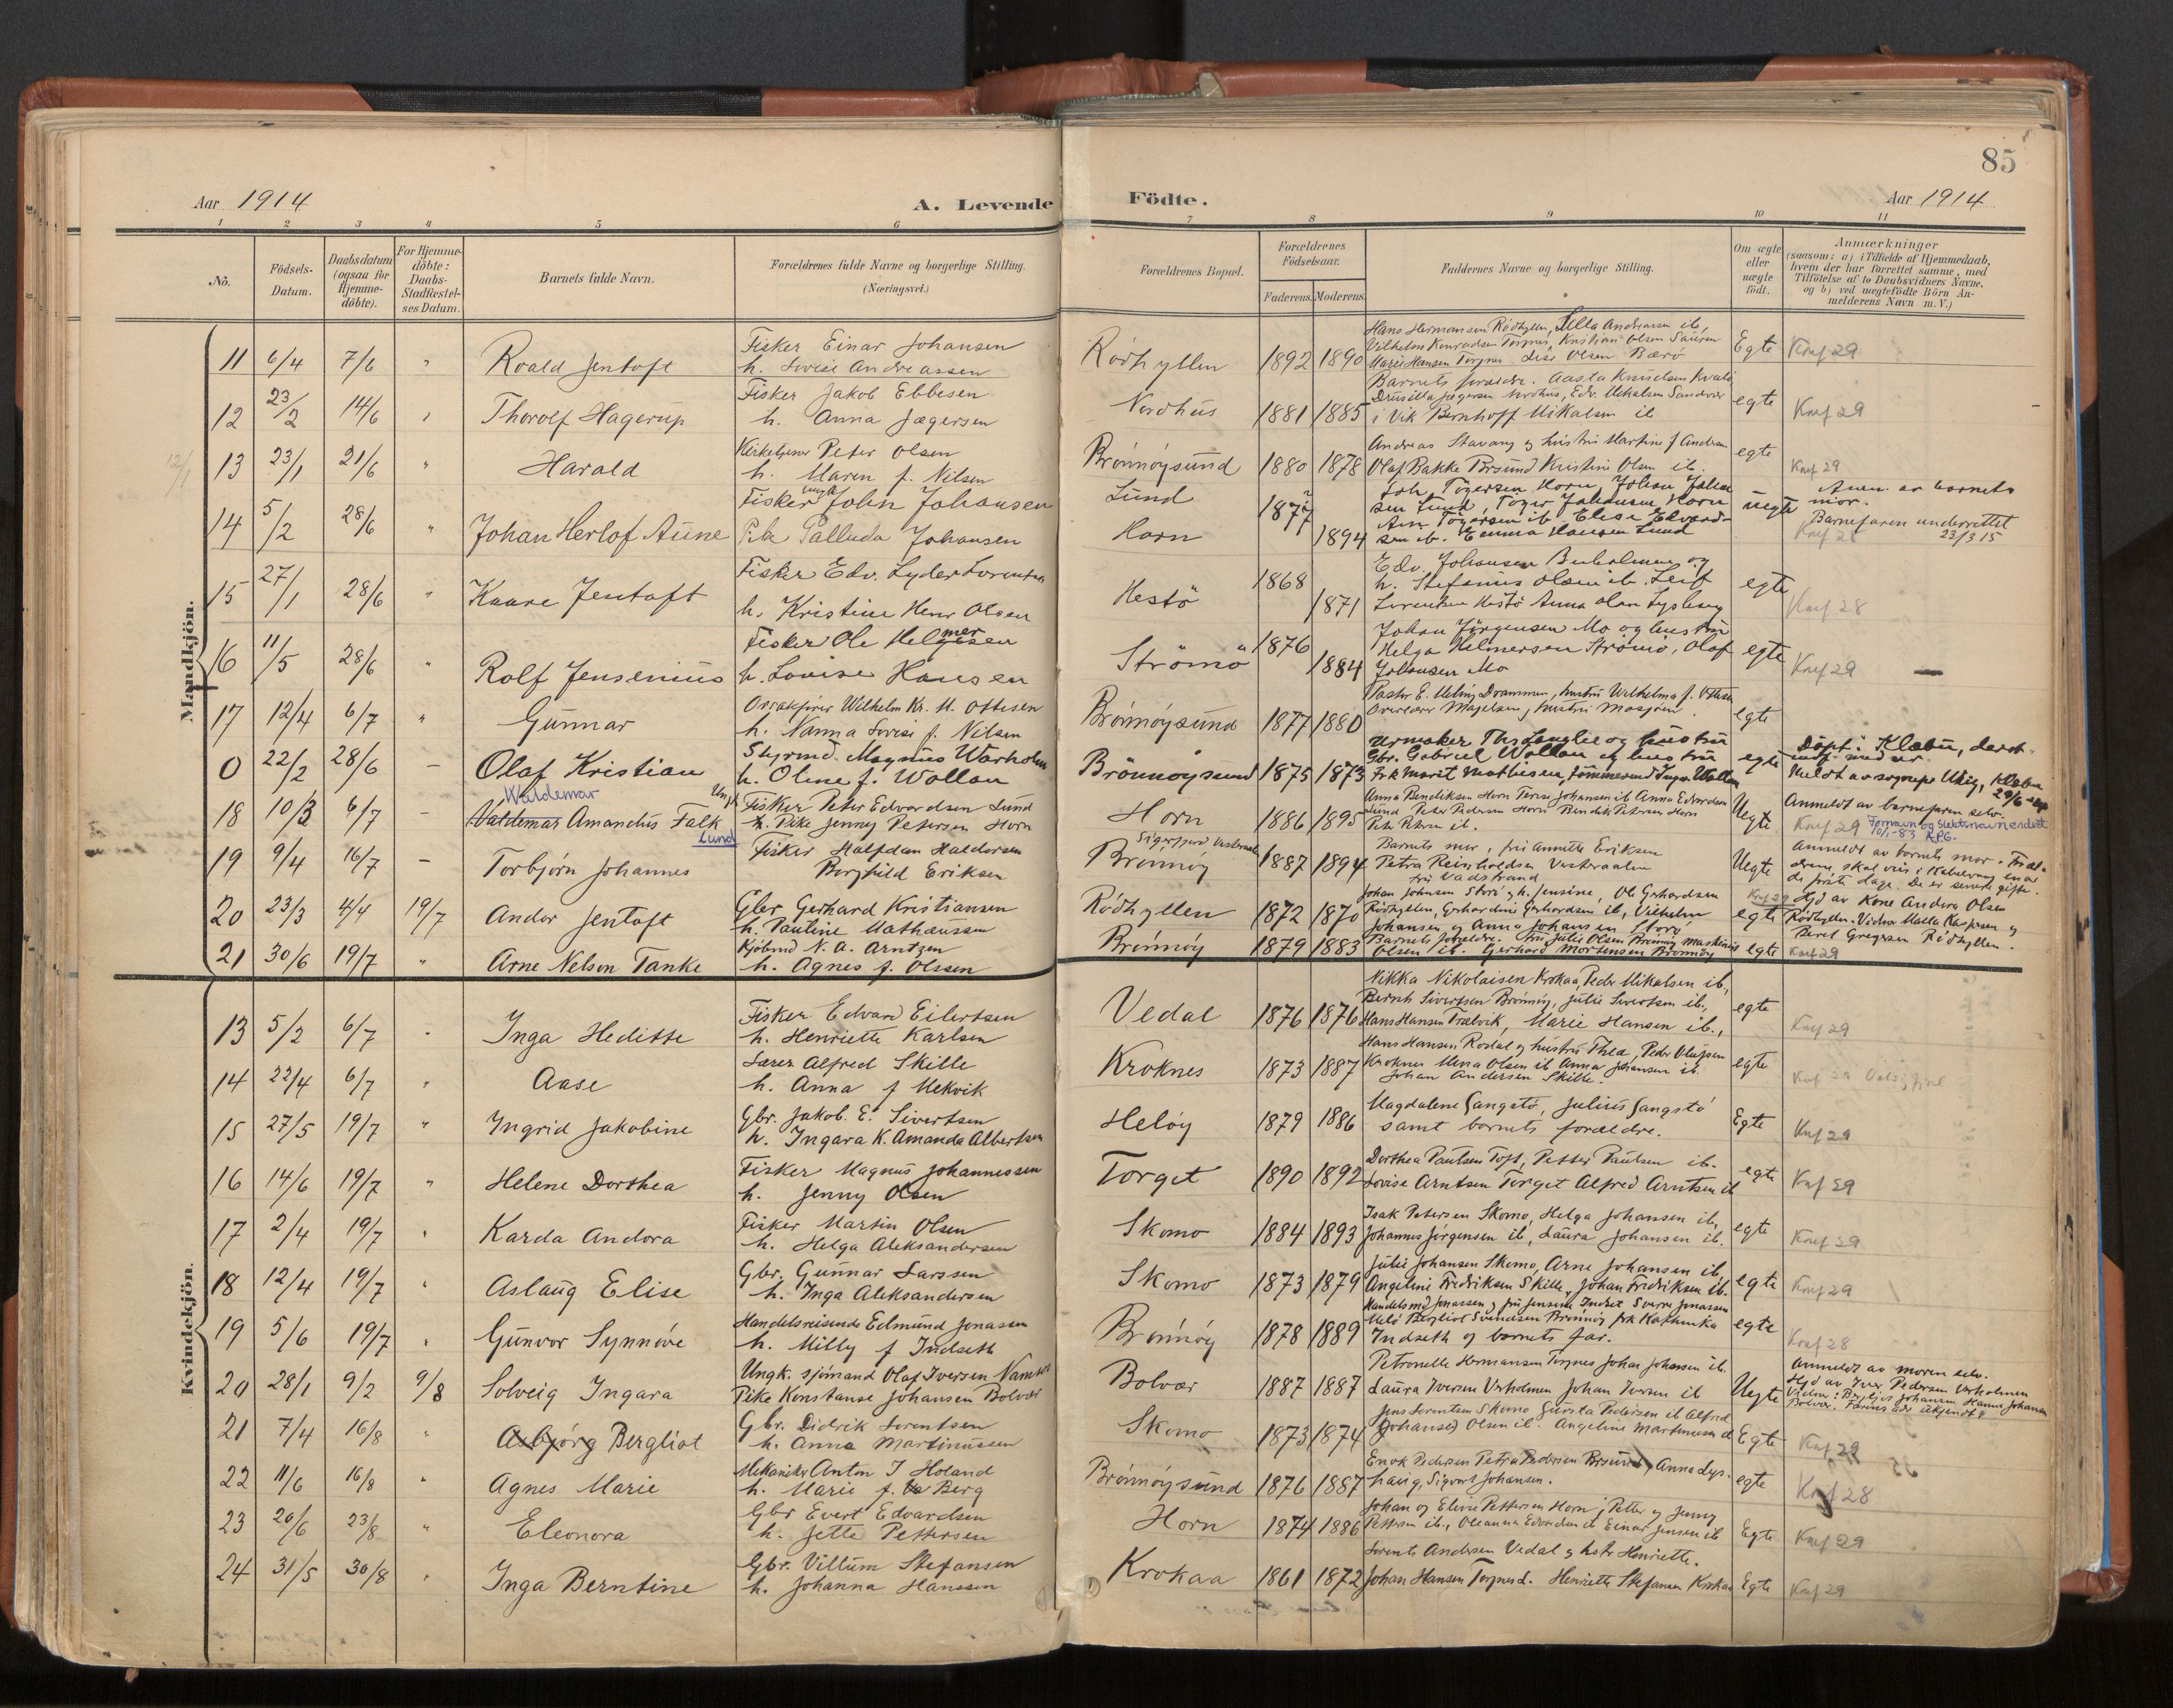 85
Aar 1914
A. Levende Födte.
Aar 1914
1 2 3 4 5 6 7 8 9 10 11
No.
Födsels-Datum.
Daabsdatum (ogsaa for Hjemme-döbte).
For Hjemme-döbte: Daabs-Stadfæstel-ses Datum.
Barnets fulde Navn.
Forældrenes fulde Navne og borgerlige Stilling.
(Næringsvei.)
Forældrenes Bopæl.
Forældrenes Födselsaar.
Faderens. Moderens.
Faddernes Navne og borgerlige Stilling.
Om ægte eller uægte födt.
Anmærkninger
(saasom: a) i Tilfælde af Hjemmedaab,
hvem der har forrettet samme, med
Tilföielse af to Daabsvidners Navne,
og b) ved uegtefödte Börn An-
melderens Navn m. V.)
Mandkjön.
11 6/4 7/6 " Roald Jentoft
Fisker Einar Johansen
h. Lovise Andreassen
Rödhyllen 1892 1890
Hans Hermansen Rödhyllen, Andreassen ib,
Vilhelm Konradsen Torgnes, Kristian Olsen
Marie Hansen Torgnes Lise Olsen Bærö
Egte Knf 29
12 23/2 14/6 " Thorolf Hagerup
Fisker Jakob Ebbesen
h. Anna Jægersen
Nordhus 1881 1885
Barnets foreldre. Aasta Knudsen
Drusilla Jægersen Nordhus, Edv. Mikalsen Sandvær
i Vik Bernhoff Mikalsen ib
egte Knf 29
12/1
13 23/1 21/6 " Harald
Kirketjener Peter Olsen
h. Maren f. Nilsen
Brönnöysund 1880 1878
Andreas Stavang og hustru Martine f Andersen
Olaf Bakke Brsund Kristine Olsen ib.
egte Knf 29
14 5/2 28/6 " Johan Herlof Aune
Fisker ungk John Johansen
Pike Palluda Johansen
Lund 1877
Horn 1894
Joh. Tögersen Horn, Johan Johan
sen Lund, Töger Johansen Horn
Ane Tögersen ib Elise Edvard-
sen ib. Emma Hansen Lund
uegte
Anm. av barnets
mor.
Barnefaren underrettet
23/3 15
Knf 28
15 27/1 28/6 " Kaare Jentoft
Fisker Edv. Lyder Lorentsen
h. Kristine Henr Olsen
Hestö 1868 1871
Edv. Johansen Buholmen og
h. Stefanus Olsen ib. Leif
Lorentsen Hestö Anna Olsen
egte Knf 28
16 11/5 28/6 " Rolf Jensenius
Fisker Ole Helgesen
mer
h. Lovise Hansen
Strömö 1876 1884
Johan Jörgensen Mo og hustru
Helga Helmersen Strömö, Olaf
Johansen Mo
egte Knf 29
17 12/4 6/7 " Gunnar
Wilhelm Kr. M. Ottesen
h. Nanna Lovise f. Nilsen
Brönnöysund 1877 1880
Pastor E. Drammen, hustru Wilhelma f. Ottesen
Overlærer Magelsen, hustru Mosjöen.
egte
0 22/2 28/6 – Olaf Kristian
Styrmd. Magnus Warholm
h. Oline f. Wollan
Brönnöysund 1875 1873
Urmaker Ths Langlie og hustru
Gbr. Gabriel Wollan og hustru
Frk Marit Mathiesen, tömmermd Inger Wollan
egte
Döpt i Klæbu,
Meldt av sogneprest Klæbu
29/6
18 10/3 6/7 – Valdemar Amandus Falk
Waldemar
Lund
Ungk Fisker Peter Edvardsen Lund
Pike Jenny Petersen Horn
Horn 1886 1895
Anna Bendiksen Horn Terese Johansen ib Anna Edvardsen
Lund Peter Pedersen Horn Bendik Petersen Horn
Petersen ib.
Uegte
Anmeldt av barnefaren selv.
Knf 29 Fornavn og slektsnavn endret
10/1-83 RPG.
19 9/4 16/7 – Torbjörn Johannes
Fisker Halfdan Haldorsen
Borghild Eriksen
Sigerfjord Vesteraalen
Brönnöy 1887 1894
Barnets mor, fru Annette Eriksen
Petra Reinholdsen Vesteraalen
fru Vadstrand
Uegte
Anmeldt av barnets mor.
De er senere gifte.
20 23/3 4/4 19/7 Andor Jentoft
Gbr Gerhard Kristiansen
h. Pauline Mathæussen
Rödhyllen 1872 1870
Johan Johnsen Storö og h. Jensine, Ole Gerhardsen
Rödhyllen, Gerhardine Gerhardsen ib, Vilhelm
Johansen og Anna Johansen Storö
egte
Knf 29 Hjd av Kone Andora Olsen
Rödhyllen. Vidner Malla Kaspersen og
Beret Gregersen Rödhyllen.
21 30/6 19/7 " Arne Nelson Tanke
Kjöbmd N. A. Arntzen
h. Agnes f. Olssen
Brönnöy 1879 1883
Barnets foreldre. Fru Julie Olsen Brönnöy Maskinist
Olsen ib. Gerhard Mortensen Brönnöy
egte Knf 29
Kvindekjön.
13 5/2 6/7 " Inga Heditte
Fisker Edvard Eilertsen
h. Henriette Karlsen
Vedal 1876 1876
Mikka Nikolaisen Krokaa, Peder Mikalsen ib,
Bernt Sivertsen Brönnöy, Julie Sivertsen ib.,
Hans Hansen Trælvik, Marie Hansen ib.,
egte Knf 29
14 22/4 6/7 " Aase
Lærer Alfred Skille
h. Anna f Mekvik
Kroknes 1873 1887
Hans Hansen Rodal og hustru Thea, Peder Olufsen
Kroknes Mina Olsen ib Anna Johansen ib.
Johan Andersen Skille.
egte Knf 29
15 27/5 19/7 " Ingrid Jakobine
Gbr. Jakob E. Sivertsen
h. Ingara K. Amanda Albertsen
Helöy 1879 1886
Magdalene Gangstö, Julius Gangstö
samt barnets foreldre.
Egte Knf 29
16 14/6 19/7 " Helene Dorthea
Fisker Magnus Johannessen
h. Jenny Olsen
Torget 1890 1892
Dorthea Paulsen Toft, Petter Paulsen ib.
Lovise Arntsen Torget Alfred Arntsen ib
egte Knf 29
17 2/4 19/7 " Karda Andora
Fisker Martin Olsen
h. Helga Aleksandersen
Skomo 1884 1893
Isak Petersen Skomo, Helga Johansen ib,
Johannes Jörgensen ib, Laura Johansen ib.
egte Knf 29
18 12/4 19/7 " Aslaug Elise
Gbr. Gunnar Larssen
h. Inga Aleksandersen
Skomo 1873 1879
Julie Johansen Skomo, Arne Johansen ib,
Angeline Fredriksen Skille, Johan Fredriksen ib.
egte Knf 29
19 5/6 19/7 " Gunvor Synnöve
Handelsreisende Edmund Jonassen
h. Milly f Indseth
Brönnöy 1878 1889
Handelsmd Jonassen og fru Jensine Indset Sverre Jonassen
Bergliot Svendsen Brönnöy frk Kathinka
Indseth og barnets far.
egte Knf 28
20 28/1 9/2 9/8 Solveig Ingara
Ungk. sjömand Olaf Iversen Namsos
Pike Konstanse Johansen Bolvær
Bolvær 1887 1887
Petronelle Hermansen Torgnes Johan Johansen ib.
Laura Iversen Verholmen Johan Iversen ib
Uegte
Anmeldt av moren selv.
Hjd av Iver Pedersen Verholmen
Vidner: Bergljot Johansen Hanna Johansen
Bolvær.
21 7/4 16/8 " Asbjörg Bergliot
Gbr. Didrik Lorentsen
h. Anna Martinussen
Skomo 1873 1874
Jens Lorentsen Skomo Gurska Pedersen ib Alfred
(Johansen) Olsen ib. Angeline Martinussen ib
Egte Knf 29
22 11/6 16/8 " Agnes Marie
Mekaniker Anton J Holand
h. Marie f. Berg
Brönnöysund 1876 1887
Enok Pedersen Petra Pedersen Brsund, Anna Lys-
haug, Sigvart Johansen.
egte Knf 28
23 20/6 23/8 " Eleonora
Gbr Evert Edvardsen
h. Jette Pettersen
Horn 1874 1886
Johan og Eline Pettersen Horn, Petter og Jenny
Pettersen ib., Oleanna Edvardsen ib Einar Jensen ib
Egte Knf 29
24 31/5 30/8 " Inga Berntine
Gbr. Villum Stefansen
h. Johanna Hanssen
Krokaa 1861 1872
Lorents Andersen Vedal og hstr Henriette.
Johan Hansen Torgnes. Henriette Stefansen Krokaa
Egte Knf 29